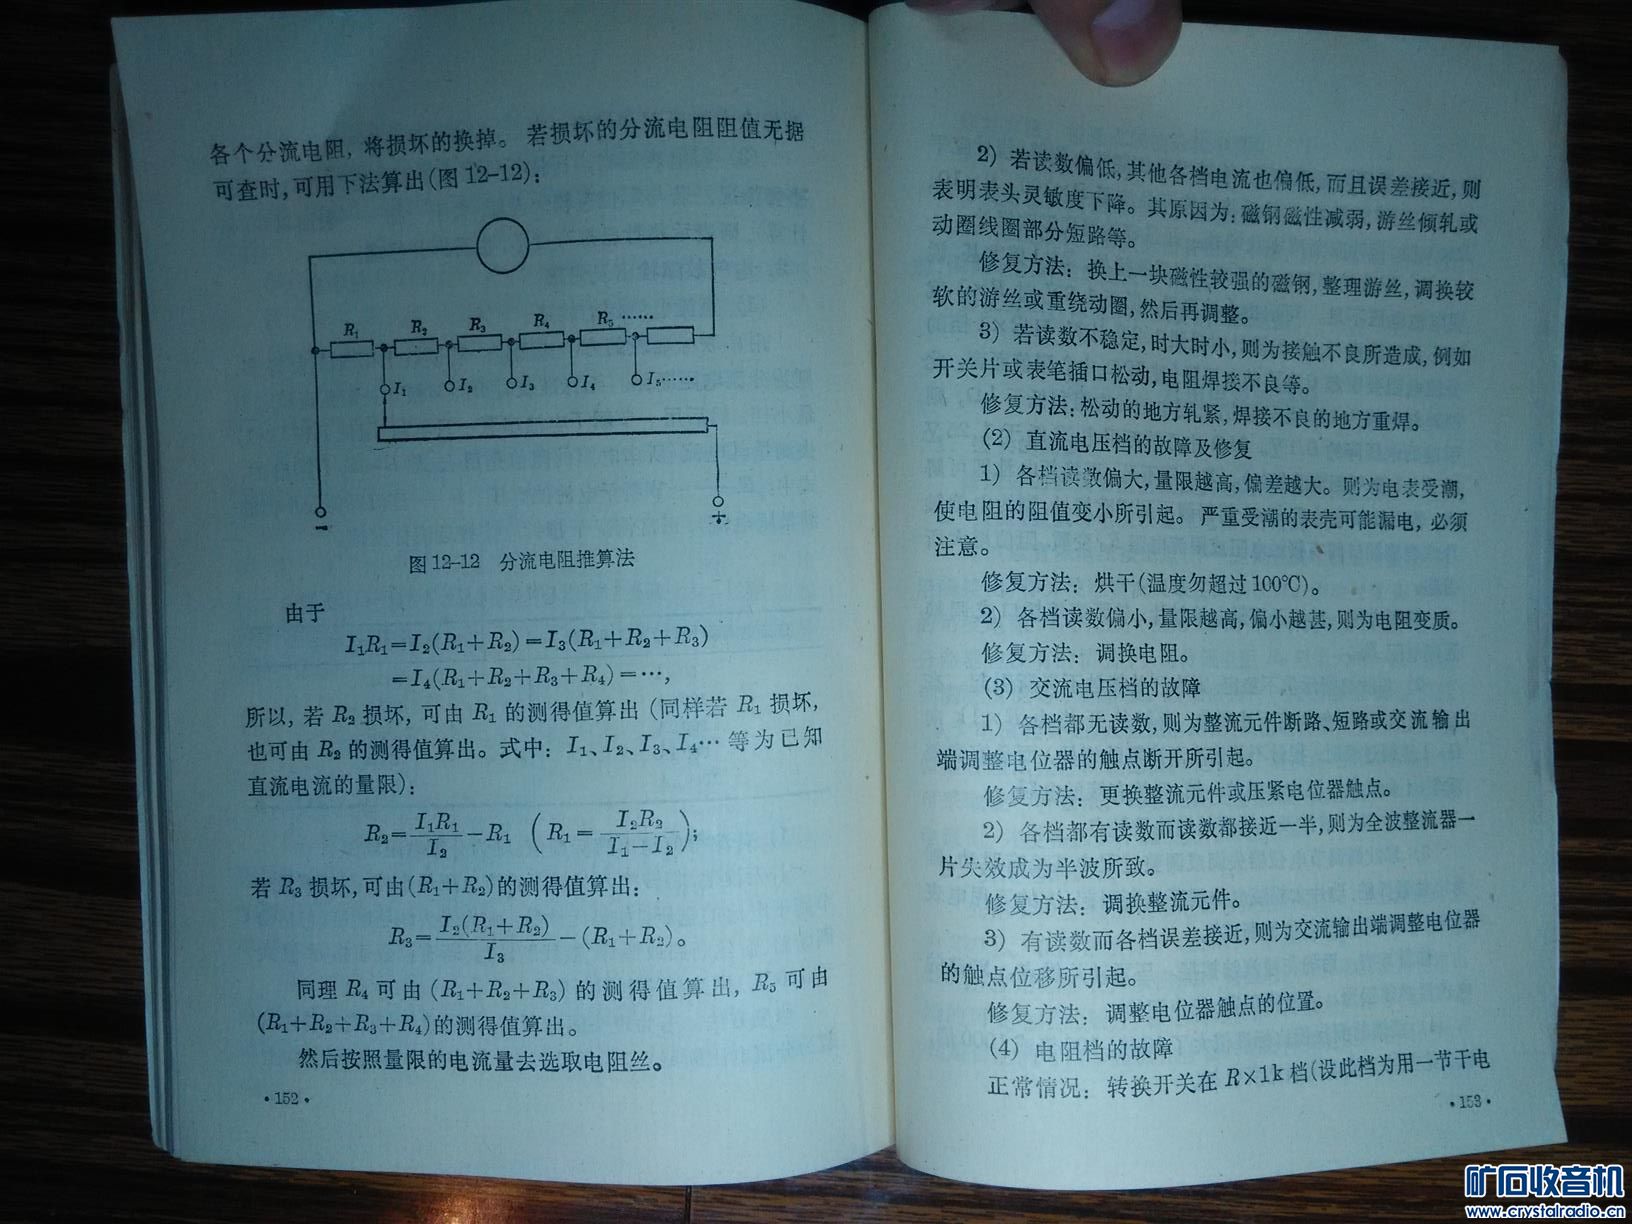 各个分流电阻，将损坏的换掉。若损坏的分流电阻阻值无据
可查时，可用下法算出(图12-12)：
R₁ R₂ R₃ R₄ R₅ ……
I₁ I₂ I₃ I₄ I₅……
- +
图12-12 分流电阻推算法
由于
I₁R₁=I₂(R₁+R₂)=I₃(R₁+R₂+R₃)
=I₄(R₁+R₂+R₃+R₄)=…，
所以，若 R₂ 损坏，可由 R₁ 的测得值算出 (同样若 R₁ 损坏，
也可由 R₂ 的测得值算出。式中：I₁、I₂、I₃、I₄… 等为已知
直流电流的量限)：
R₂=I₁R₁/I₂-R₁ (R₁=I₂R₂/(I₁-I₂))；
若 R₃ 损坏，可由(R₁+R₂)的测得值算出：
R₃=I₂(R₁+R₂)/I₃-(R₁+R₂)。
同理 R₄ 可由 (R₁+R₂+R₃) 的测得值算出，R₅ 可由
(R₁+R₂+R₃+R₄)的测得值算出。
然后按照量限的电流量去选取电阻丝。
·152·
2) 若读数偏低，其他各档电流也偏低，而且误差接近，则
表明表头灵敏度下降。其原因为：磁钢磁性减弱，游丝倾轧或
动圈线圈部分短路等。
修复方法：换上一块磁性较强的磁钢，整理游丝，调换较
软的游丝或重绕动圈，然后再调整。
3) 若读数不稳定，时大时小，则为接触不良所造成，例如
开关片或表笔插口松动，电阻焊接不良等。
修复方法：松动的地方轧紧，焊接不良的地方重焊。
(2) 直流电压档的故障及修复
1) 各档读数偏大，量限越高，偏差越大。则为电表受潮，
使电阻的阻值变小所引起。严重受潮的表壳可能漏电，必须
注意。
修复方法：烘干(温度勿超过100℃)。
2) 各档读数偏小，量限越高，偏小越甚，则为电阻变质。
修复方法：调换电阻。
(3) 交流电压档的故障
1) 各档都无读数，则为整流元件断路、短路或交流输出
端调整电位器的触点断开所引起。
修复方法：更换整流元件或压紧电位器触点。
2) 各档都有读数而读数都接近一半，则为全波整流器一
片失效成为半波所致。
修复方法：调换整流元件。
3) 有读数而各档误差接近，则为交流输出端调整电位器
的触点位移所引起。
修复方法：调整电位器触点的位置。
(4) 电阻档的故障
正常情况：转换开关在 R×1k 档(设此档为用一节干电
·153·
矿石收音机
www.crystalradio.cn